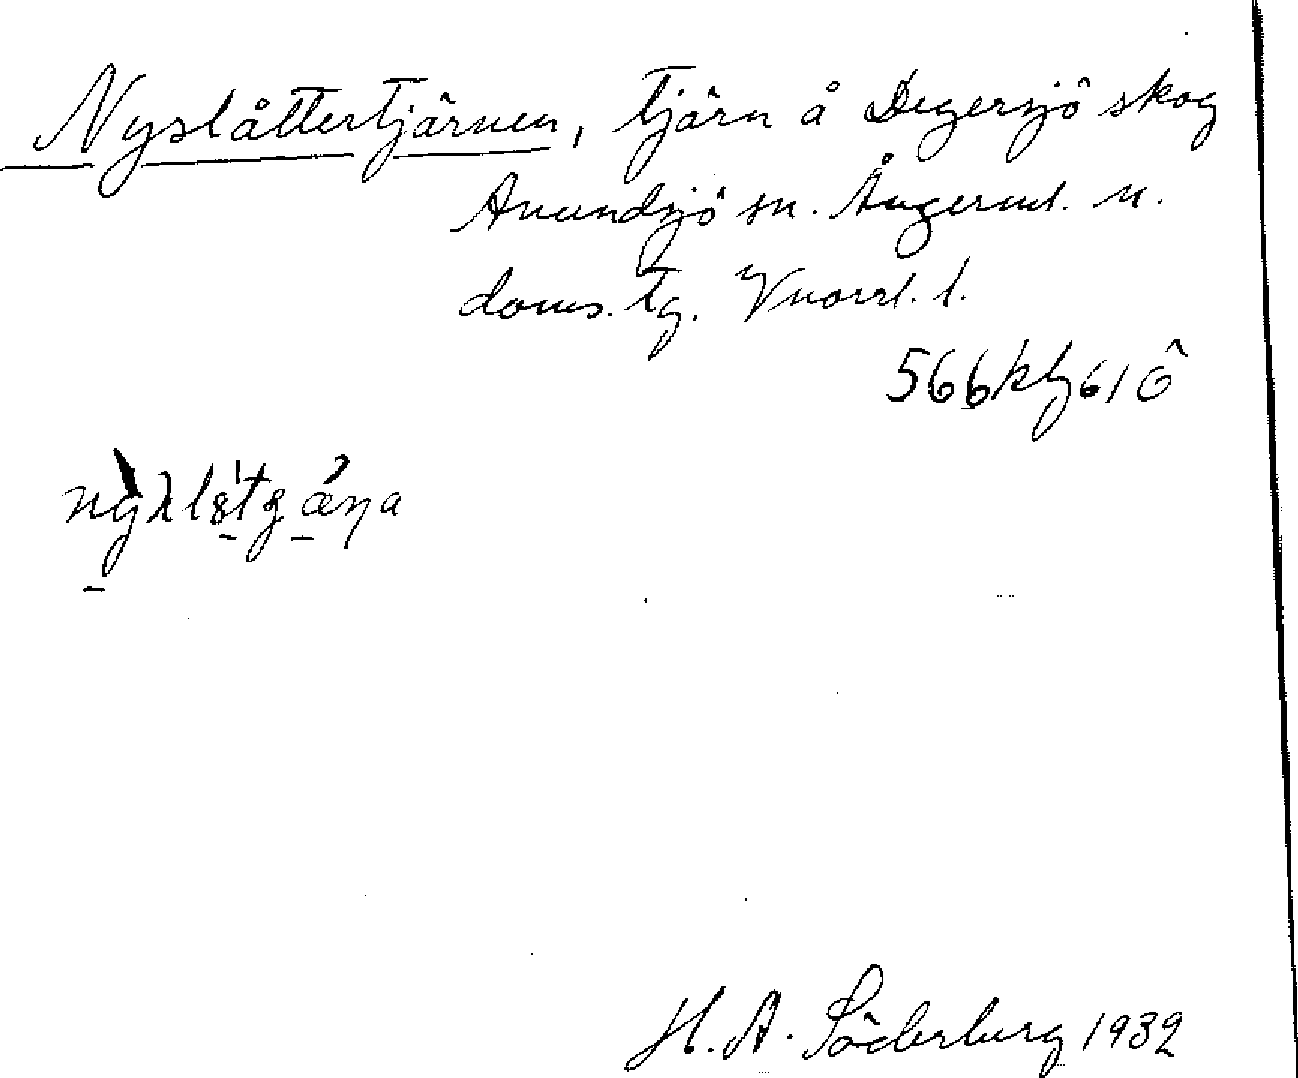 Nyslåttertjärnen, tjärn å Degersjö skog
Anundsjö sn. Ångerml. n.
doms. tg. Vnorrl. l.
566 kly 61 Ö
H. A. Söderberg 1932